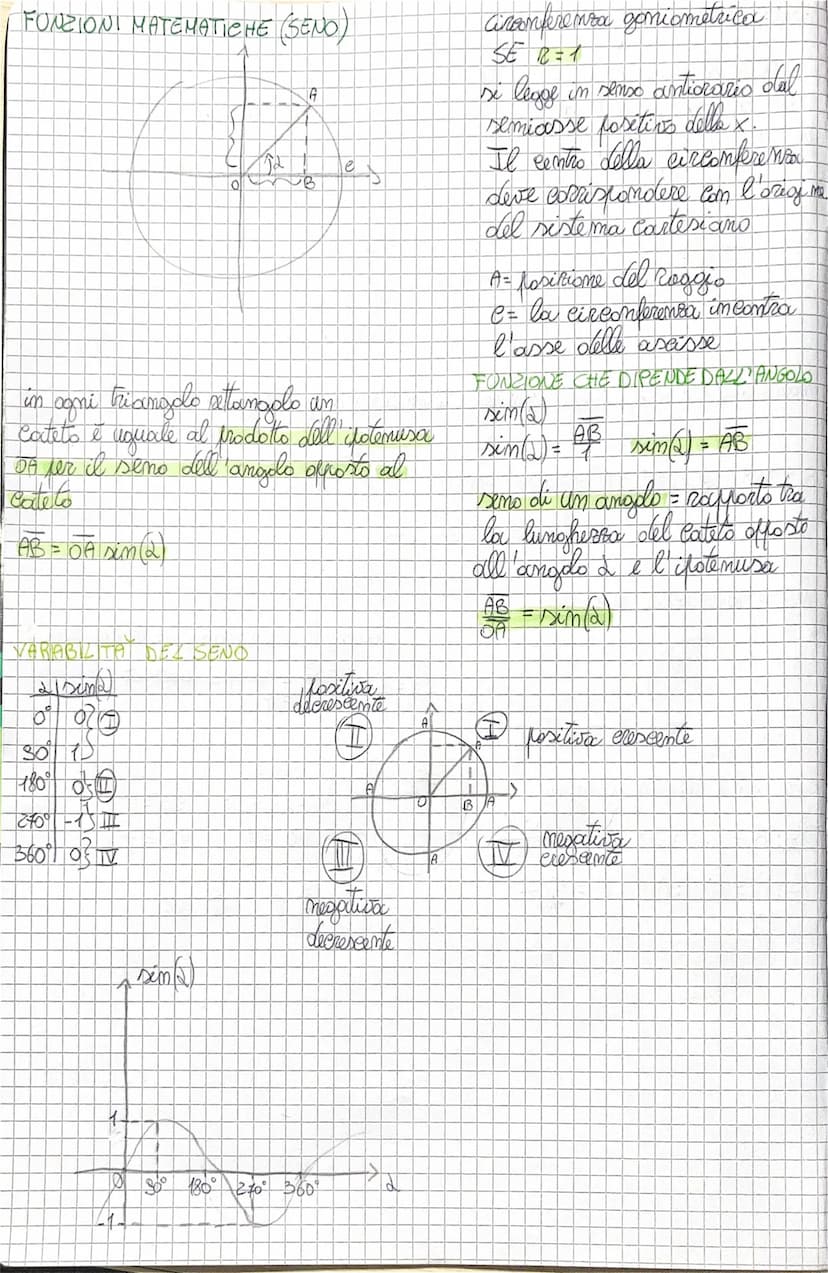 FUNZIONI MATEMATICHE (SENO)
A
α
O
B
e
circonferenza goniometrica
SE R=1
si legge in senso antiorario dal
semiasse positivo della x.
Il centro della circonferenza
deve corrispondere con l'origine
del sistema cartesiano
A= posizione del raggio
e= la circonferenza incontra
l'asse delle ascisse
in ogni triangolo rettangolo un
cateto è uguale al prodotto dell'ipotenusa
OA per il seno dell'angolo opposto al
cateto
AB = OA sin(α)
FUNZIONE CHE DIPENDE DALL'ANGOLO
sin(α)
sin(α) = AB/1 sin(α) = AB
seno di un angolo = rapporto tra
la lunghezza del cateto opposto
all'angolo α e l'ipotenusa
AB/OA = sin(α)
VARIABILITA' DEL SENO
α | sin(α)
0° | 0 } I
90° | 1 }
180° | 0 } II
270° | -1 } III
360° | 0 } IV
positiva
decrescente
II
I
positiva crescente
A
A
A
O
B
A
A
III
negativa
decrescente
IV
negativa
crescente
sin(α)
1
0
90° 180° 270° 360° α
-1